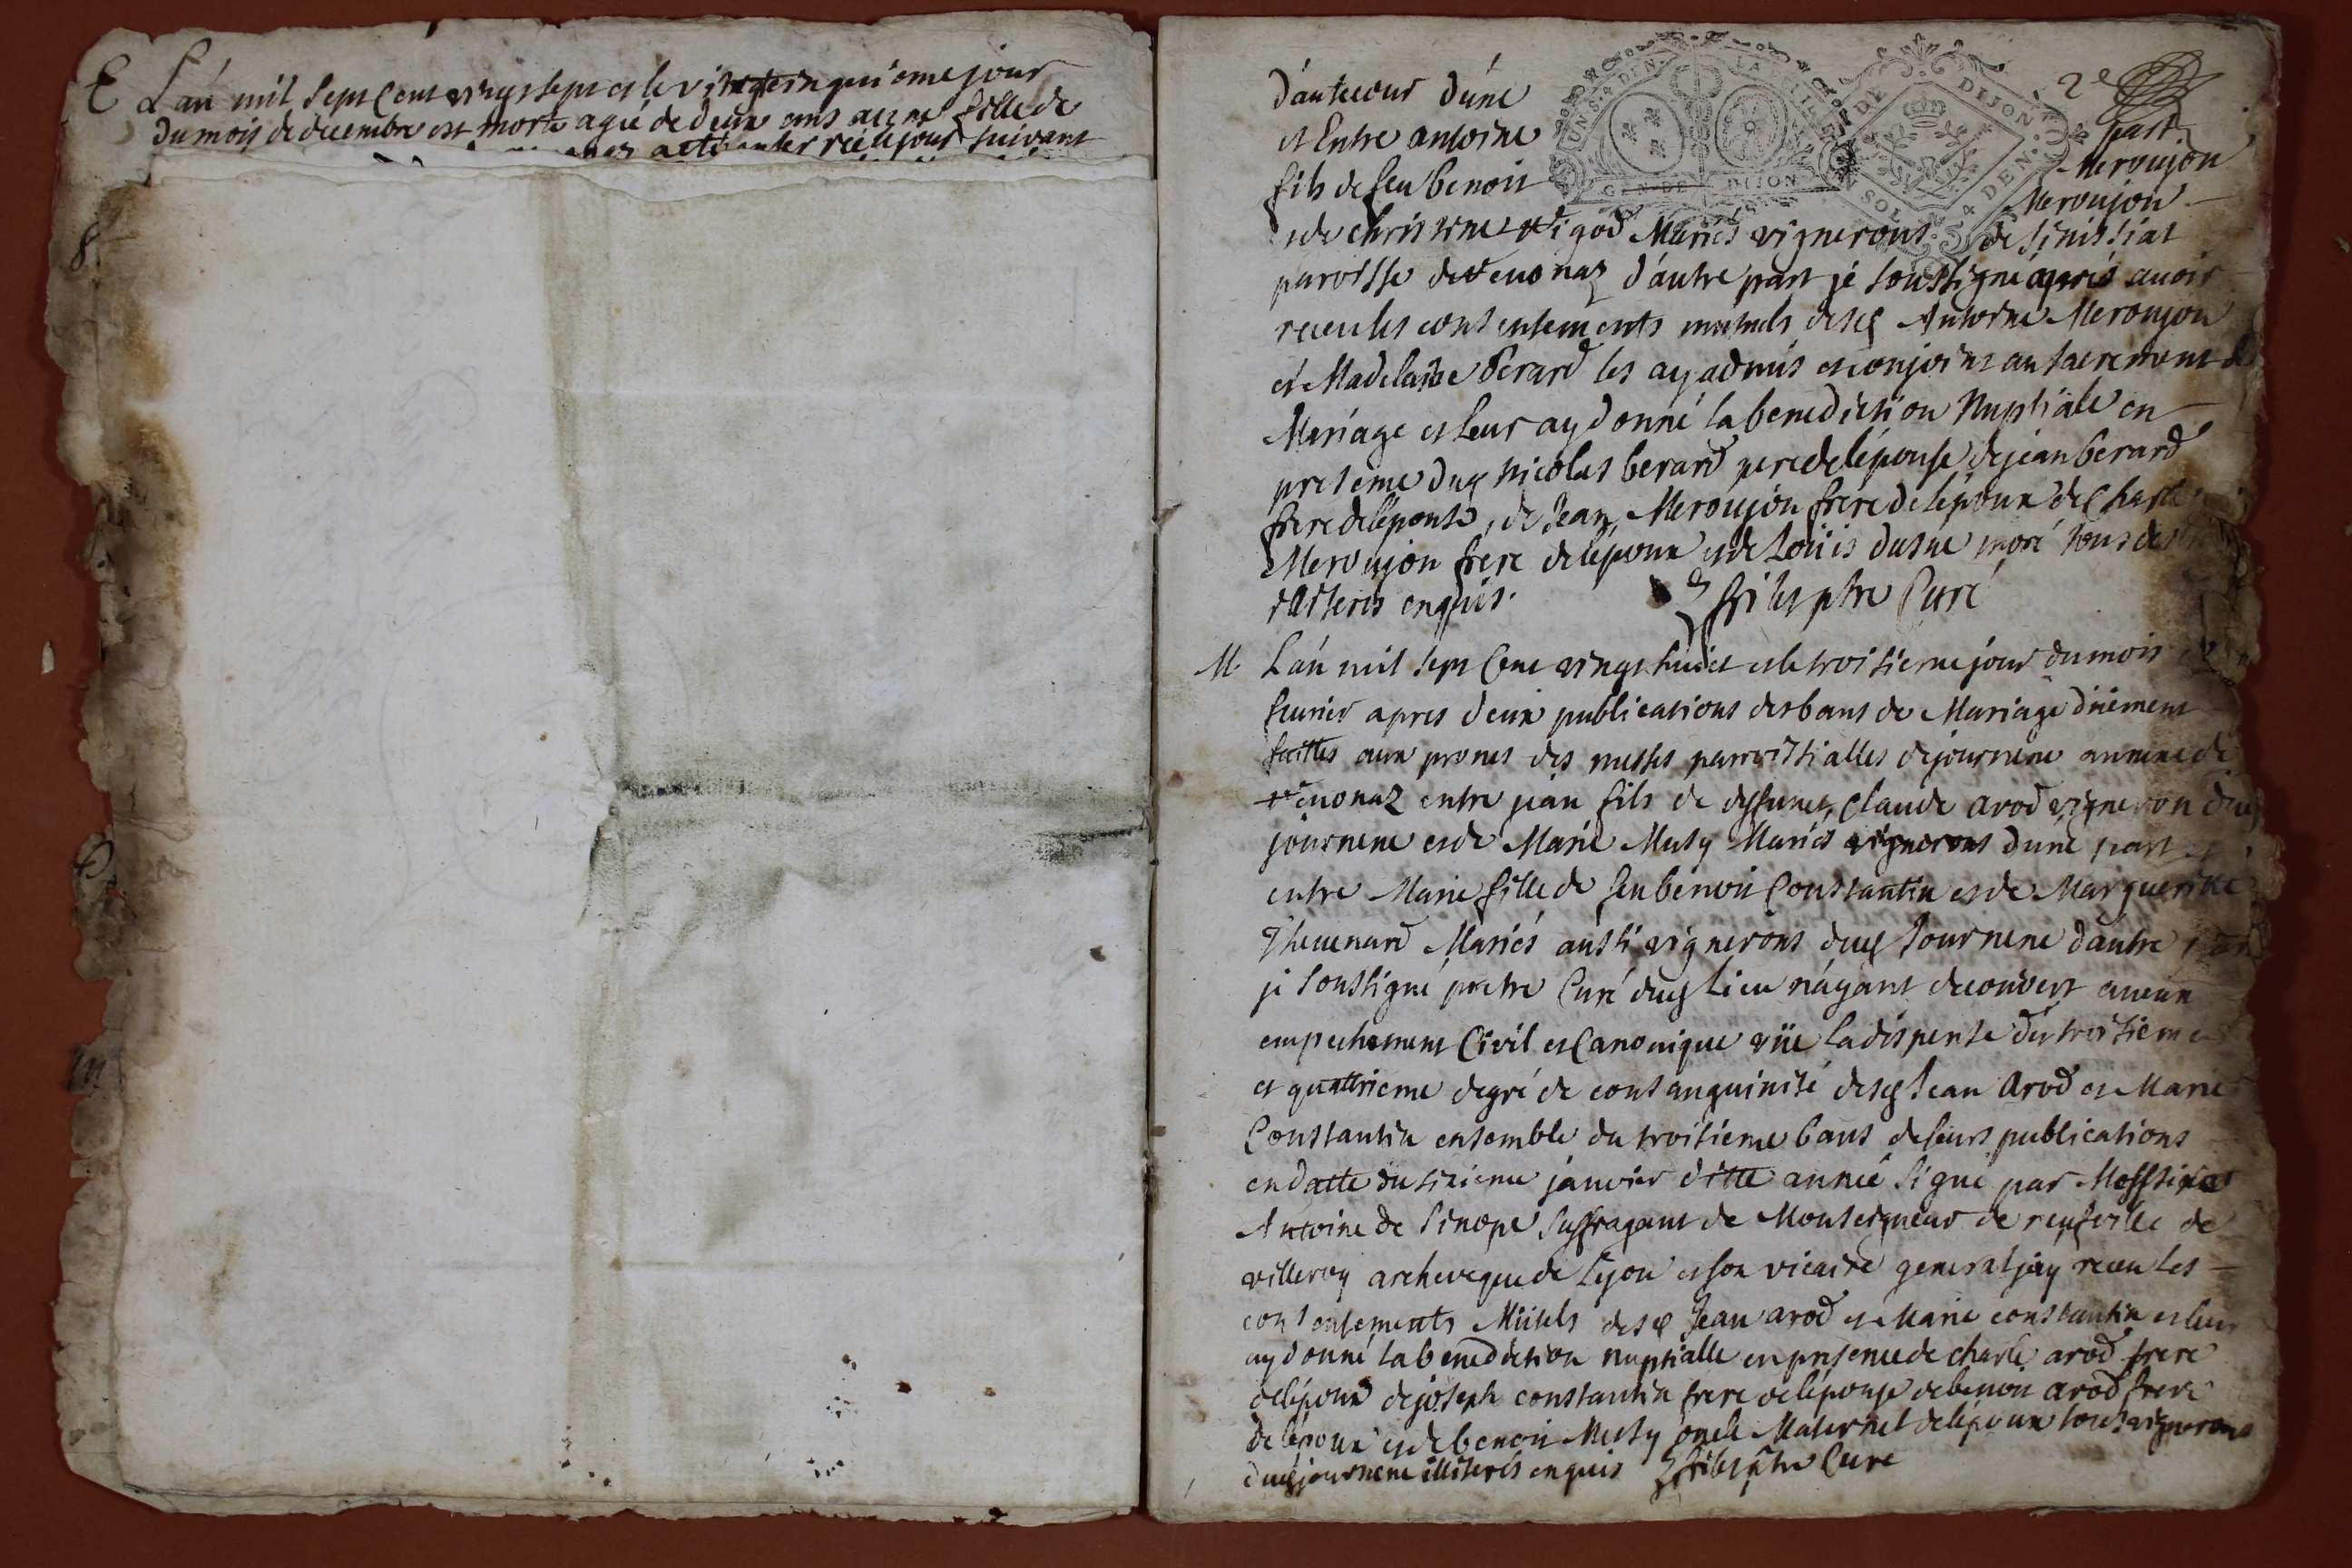 E Lán mil Sept Cent vingt sept et le vingtcinquieme jour
du mois de decembre est morte agée de deux ans fille de
le jour suivant
d'antecour d'úne
2e
part
et Entre antoine
Meroujon
fils de feu benoit
Meroujon
GEN. DE DIJON
et de christine Vigod Mariés vignerons de sinissiat
paroisse de Veuonaz d'autre part jé soussigné aprés auoir
receu les consentements mutuels desd Antoine Meroujon
et Madelaine Berard les ay admis et conjoint au sacrement de
Mariage et Leur ay donné la benediction Nuptiale en
presence dud Nicolas berard pere de lépouse de jean berard
frere de lépouse, de Jean Meroujon frere de lépoux de Charle
Meroujon frere de lépoux et de Loüis dusne moré tous
illiterés enquis. fribs ptre Curé
M. Lán mil sept Cent vingt huict et le troisieme jour du mois
feurier apres deux publications des bans de Mariage düement
faittes aux prones des messes parroissialles de journene annexe de
Veuonaz entre jéan fils de deffunct Claude arod vigneron dud
journene et de Marie Musy Mariés vignerons dúne part et
entre Marie fille de feu benoit Constantin et de Marguerite
Theuenard Mariés aussi vignerons dud Journene dáutre part
je soussigné pretre Curé dud Lieu náyant decouvert aucun
empechement Civil et Canonique vüe la dispense du troisieme
et quattrieme degré de consanguinité desd Jean Arod et Marie
Constantin ensemble du troisieme bans de leurs publications
en datte du sixieme janvier ditte année signé par Messire
Antoine de Sinope suffragant de Monseigneur de neufville de
villeroy archeveque de Lyon et son vicaire general jay receu les
consentements Mütuels desd Jean arod et Marie constantin et leur
ay donné la benediction nuptialle en presence de charle arod frere
de lépoux de joseph constantin frere de lépouse de benoit arod frere
de lépoux et de benoit Musy oncle Maternel de lépoux tous vignerons
dud journene illiterés enquis fribs ptre Cure